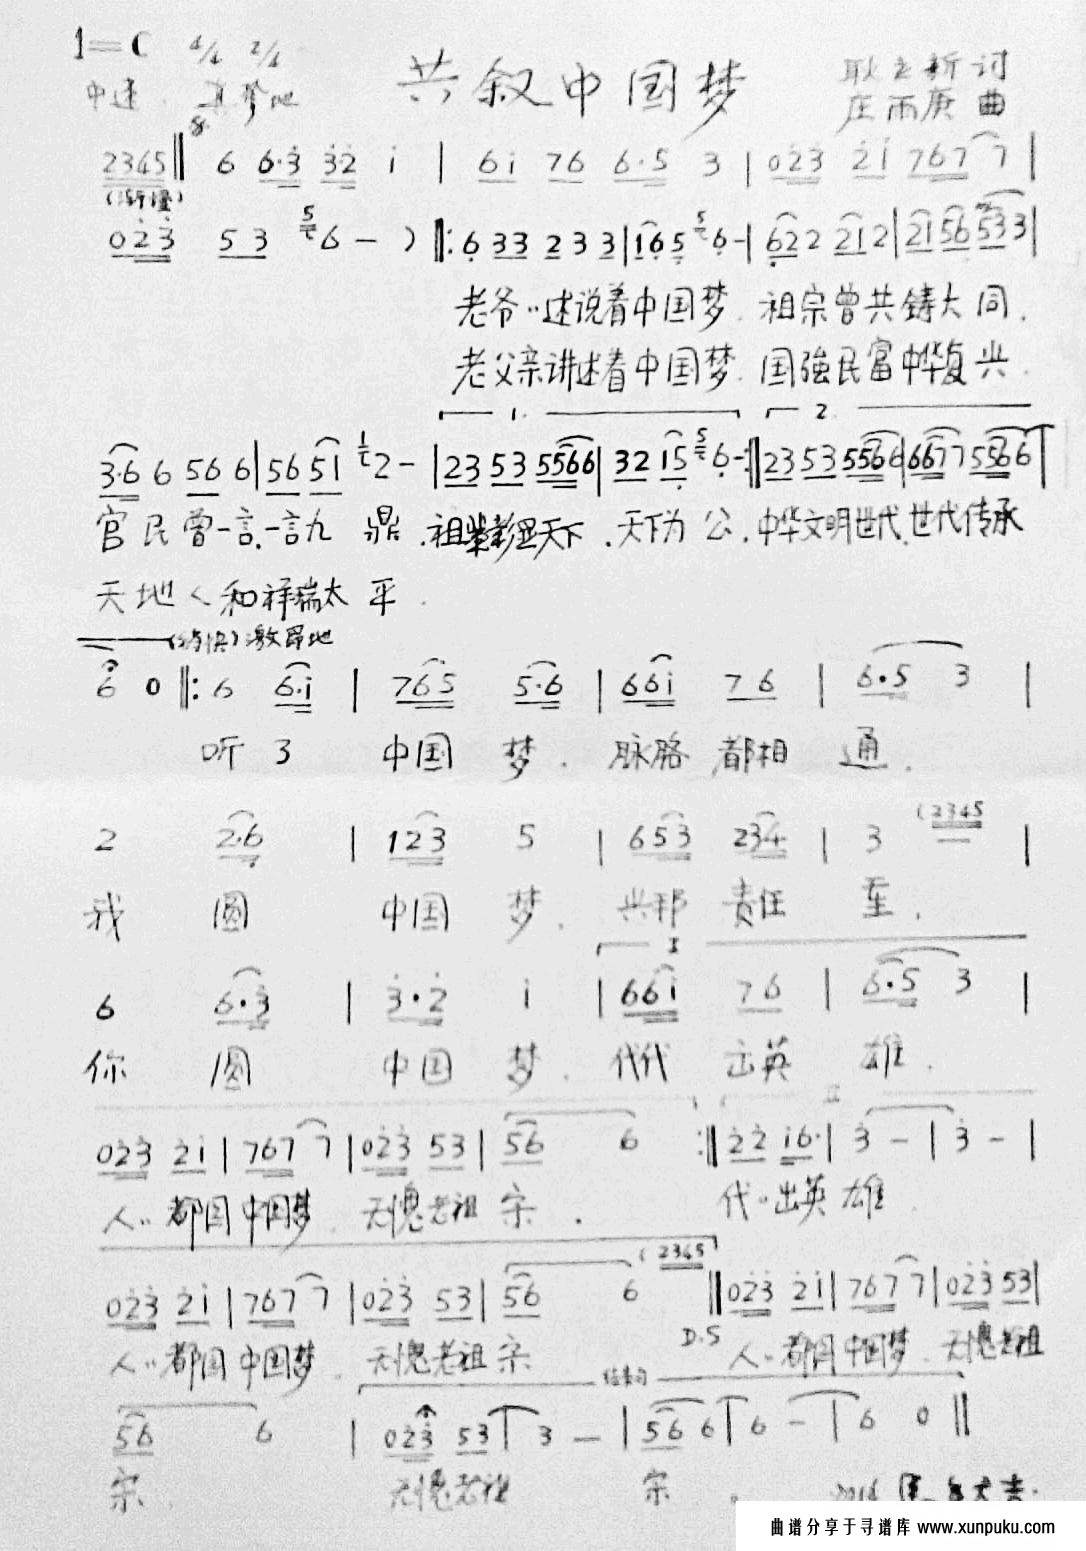 1=C 4/4 2/4
共叙中国梦
耿立新 词
中速 真挚地
庄雨庚 曲
2345‖ 6 6·3 3·2 i | 6i 76 6·5 3 | 023 2i 767 7 |
(渐慢)
023 53 6 - ) ‖: 6 33 2 3 3 | 165 6 - | 622 212 | 2156 533 |
老爷〃述说着中国梦.祖宗曾共铸大同.
老父亲讲述着中国梦.国強民富中华复兴.
1. 2.
3·6 6 56 6 | 56 51 2 - | 23 53 5566 | 32 15 6 - :‖ 23 53 5566 | 6677 5566 |
官民曾一言.一言九鼎.天下.天下为公.中华文明世代.世代传承
天地 和祥瑞太平.
激昂地
6 0 ‖: 6 6·i | 765 5·6 | 66i 76 | 6·5 3 |
听了中国梦.脉胳都相通.
2 2·6 | 123 5 | 653 234 | 3 (2345 |
我圆中国梦.兴邦责任重.
I
6 6·3 | 3·2 i | 66i 76 | 6·5 3 |
你圆中国梦.代代出英雄.
II
023 2i | 767 7 | 023 53 | 56 6 :‖ 22 i6· | 3 - | 3 - |
人〃都圆中国梦.无愧老祖宗. 代〃出英雄.
023 2i | 767 7 | 023 53 | 56 6 (2345 ‖ 023 2i | 767 7 | 023 53 |
D.S
人〃都圆中国梦.无愧老祖宗 人〃都圆中国梦.无愧老祖
结束句
56 6 | 023 53 3 - | 56 6 6 - 6 0 ‖
宗. 无愧老祖宗.
曲谱分享于寻谱库 www.xunpuku.com